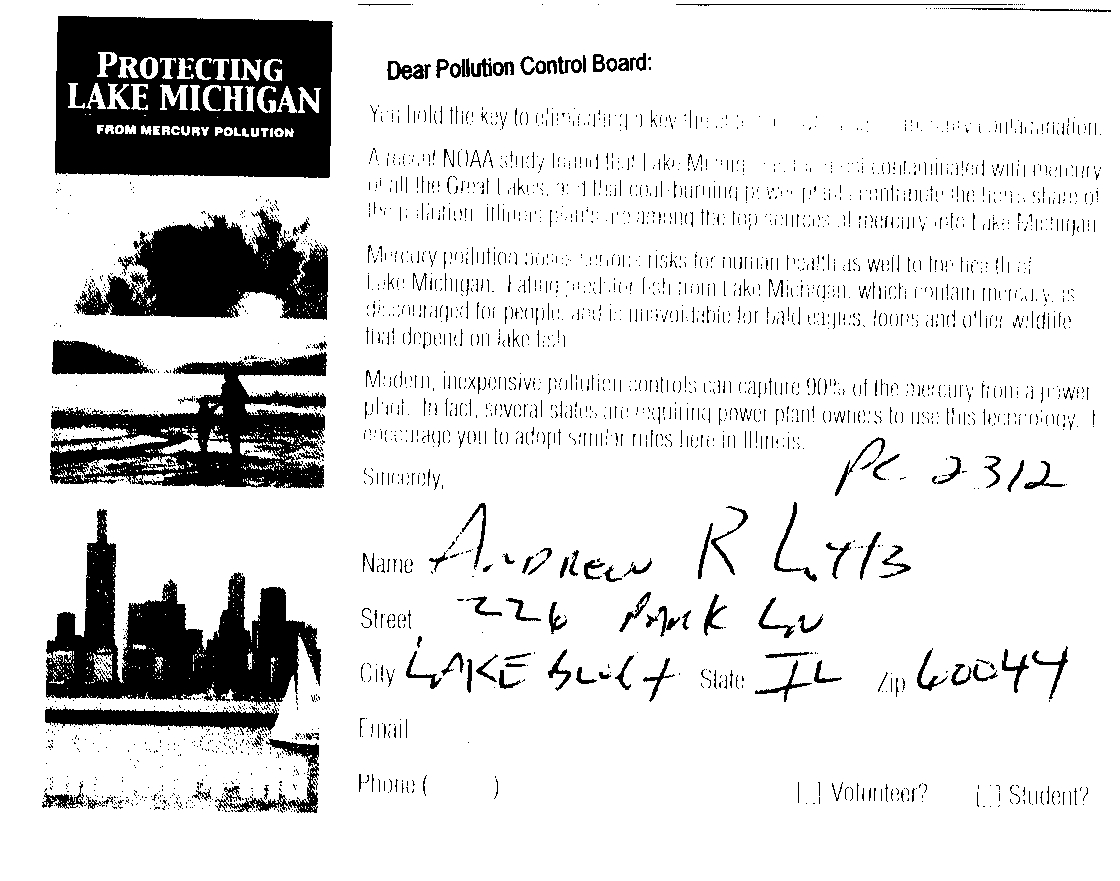 PROTECTING
LAKE MICHIGAN
FROM MERCURY POLLUTION
Dear Pollution Control Board:
You hold the key to eliminating a key threat mercury contamination.
A recent NOAA study found that Lake Michigan contaminated with mercury
of all the Great Lakes, and that coal-burning power plants contribute the lion's share of
the pollution. Illinois plants are among the top sources of mercury into Lake Michigan.
Mercury pollution poses serious risks for human health as well to the health of
Lake Michigan. Eating predator fish from Lake Michigan, which contain mercury, is
discouraged for people, and is unavoidable for bald eagles, loons and other wildlife
that depend on lake fish.
Modern, inexpensive pollution controls can capture 90% of the mercury from a power
plant. In fact, several states are requiring power plant owners to use this technology. I
encourage you to adopt similar rules here in Illinois.
PC 2312
Sincerely,
Name ANDREW R
Street 226 PARK LN
City LAKE State IL Zip 60044
Email
Phone ( )
[ ] Volunteer? [ ] Student?